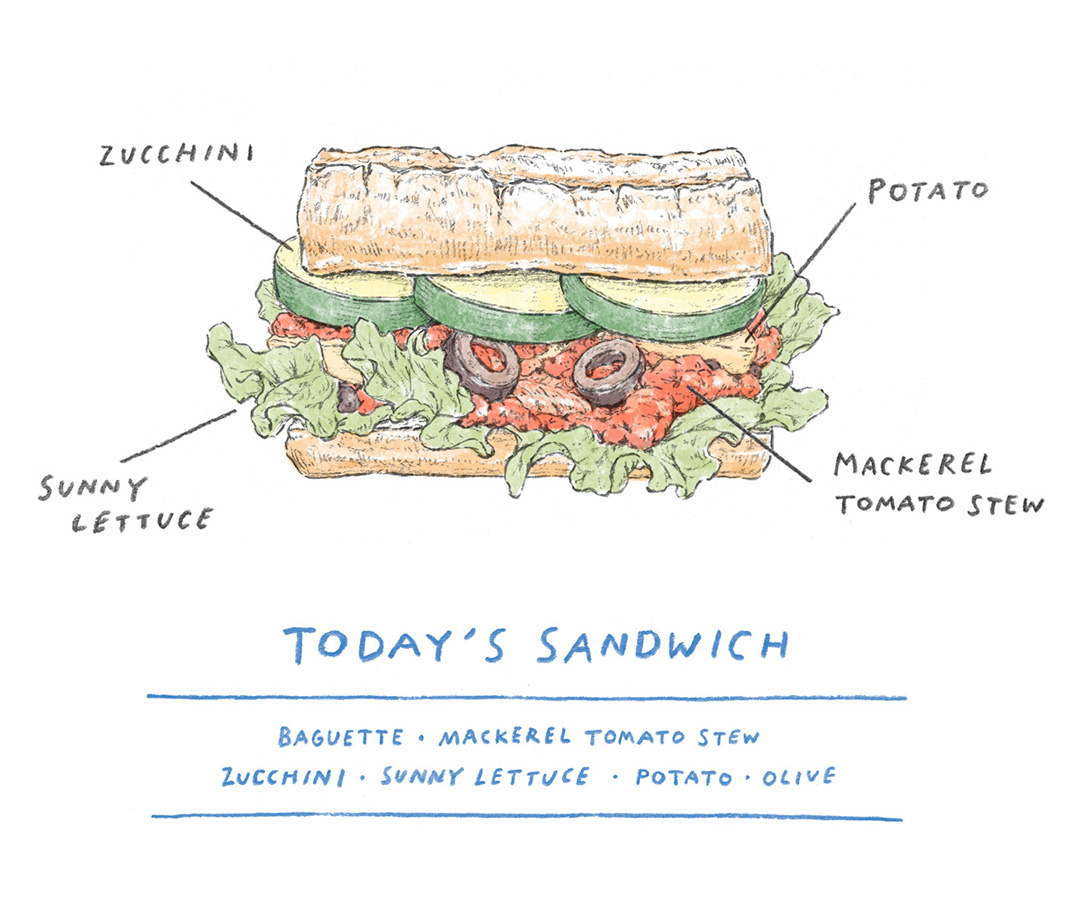 ZUCCHINI
POTATO
SUNNY
LETTUCE
MACKEREL
TOMATO STEW
TODAY'S SANDWICH
BAGUETTE · MACKEREL TOMATO STEW
ZUCCHINI · SUNNY LETTUCE · POTATO · OLIVE